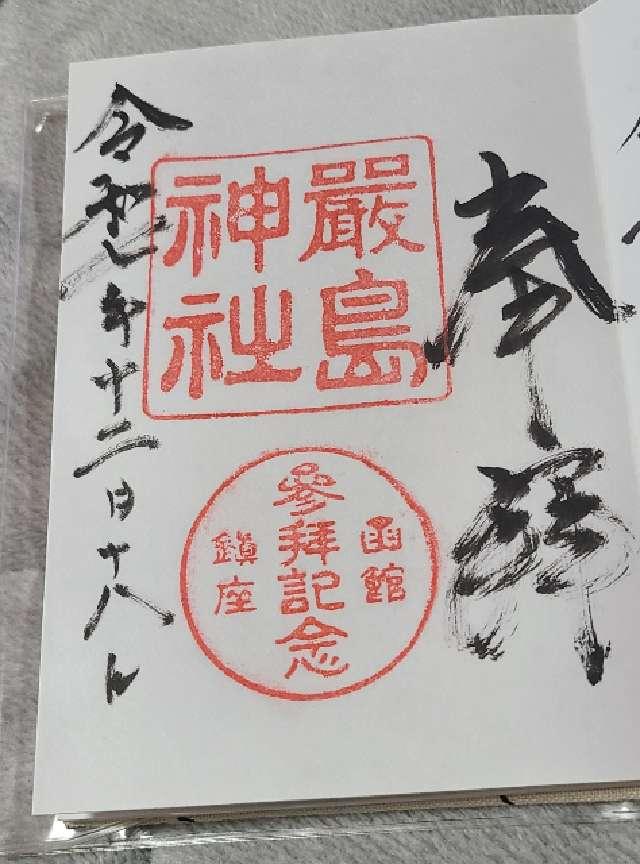 奉拝
嚴島
神社
函館
參拜記念
鎮座
令和七年十二月十八日